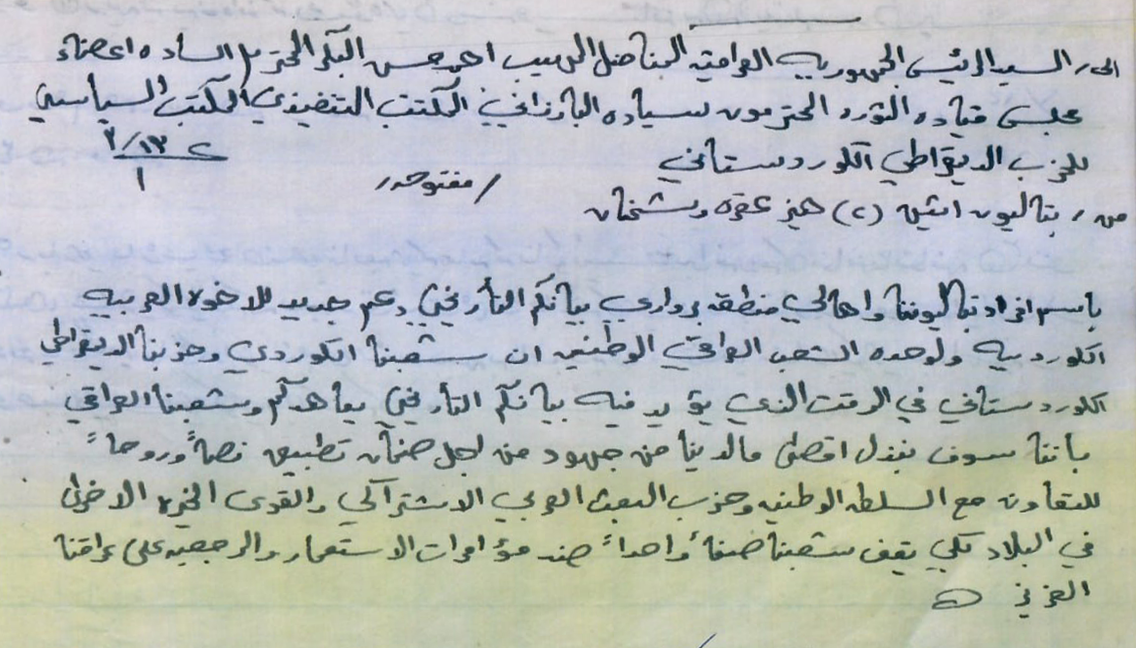 الى/ السيد الرئيس الجمهوريه العراقيه المناضل المهيب احمد حسن البكر المحترم الساده اعضاء
مجلس قياده الثوره المحترمون سياده البارزاني المكتب التنفيذي المكتب السياسي
للحزب الديقراطي الكوردستاني ٢ ١٣/٣
/مفتوحه/ ١
من/ بتاليون اثنين (٢) هيز عقره وشخان
باسم افراد بتاليوننا واهالي منطقه برواري بيانكم التأريخي دعم جديد للاخوه العربيه
الكورديه ولوحده الشعب العراقي الوطنيه ان شعبنا الكوردي وحزبنا الديقراطي
الكوردستاني في الوقت الذي يؤيد فيه بيانكم التأريخي يعاهدكم وشعبنا العراقي
باننا سوف نبذل اقصى مالدينا من جهود من اجل ضمان تطبيق نصاً وروحاً
للتعاون مع السلطه الوطنيه وحزب البعث العربي الاشتراكي والقوى الخيره الاخرى
في البلاد لكي يقف شعبنا صفاً واحداً ضد مؤامرات الاستعمار والرجعيه على عراقنا
العزيز